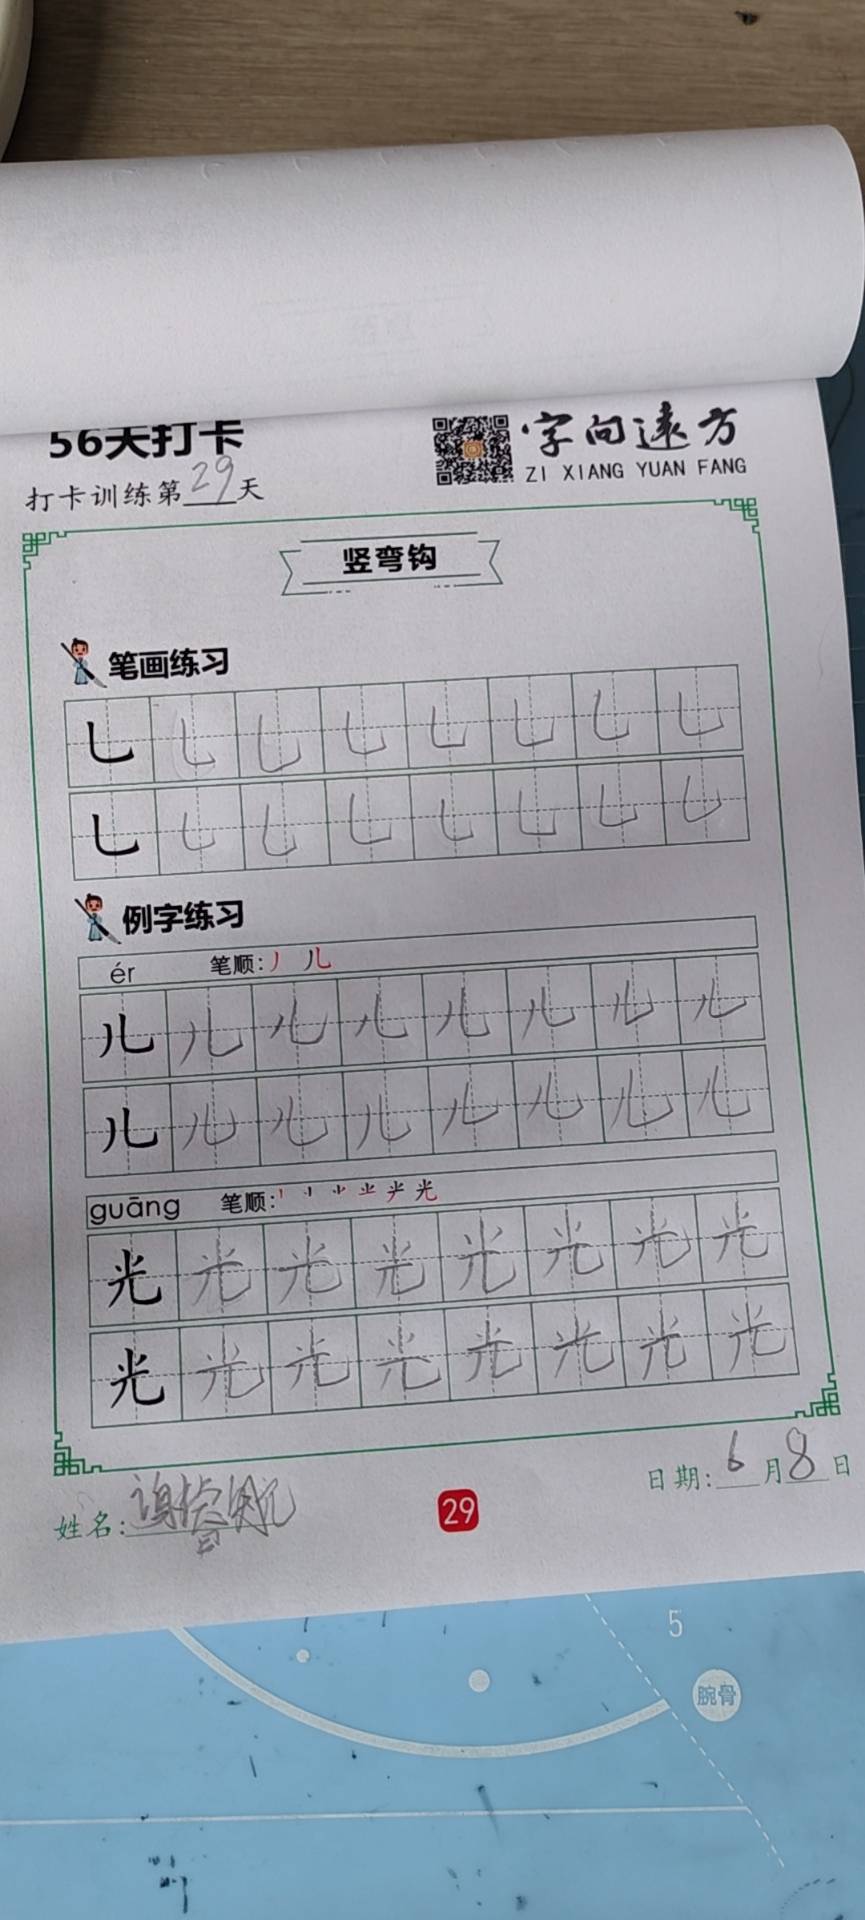 56天打卡
字向远方
ZI XIANG YUAN FANG
打卡训练第29天
竖弯钩
笔画练习
乚 乚 乚 乚 乚 乚 乚 乚
乚 乚 乚 乚 乚 乚 乚 乚
例字练习
ér 笔顺: 丿 儿
儿 儿 儿 儿 儿 儿 儿 儿
儿 儿 儿 儿 儿 儿 儿 儿
guāng 笔顺: 光
光 光 光 光 光 光 光 光
光 光 光 光 光 光 光 光
日期: 6月8日
姓名:
29
5
腕骨